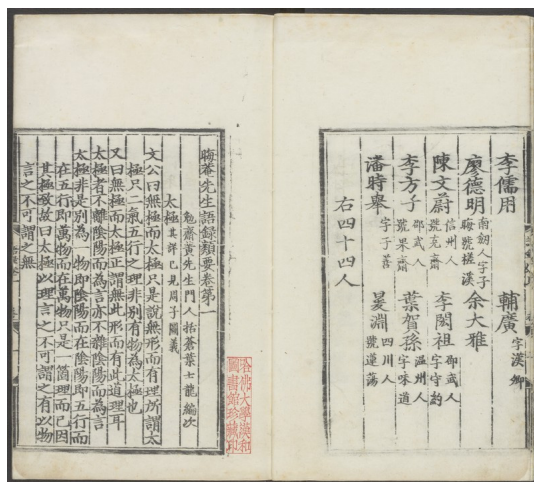 李儒用 輔廣 字漢卿
廖德明 南劍人字子晦號槎溪 余大雅
陳文蔚 信州人號克齋 李閎祖 邵武人字守約
李方子 邵武人號果齋 葉賀孫 溫州人字味道
潘時舉 字子善 㬊淵 四川人號蓮蕩
右四十四人
晦菴先生語録類要卷第一
勉齋黄先生門人括蒼葉士龍編次
太極 其詳已見周子圖義
文公曰無極而太極只是說無形而有理所謂太
極只二氣五行之理非别有物為太極也
又曰無極而太極正謂無此形而有此道理耳
太極者不離陰陽而為言亦不雜陰陽而為言
太極非是别為一物即陰陽而在陰陽即五行而
在五行即萬物而在萬物只是一箇理而已因
其極致故曰太極以理言之不可謂之有以物
言之不可謂之無
哈佛大學漢和
圖書館珍藏印